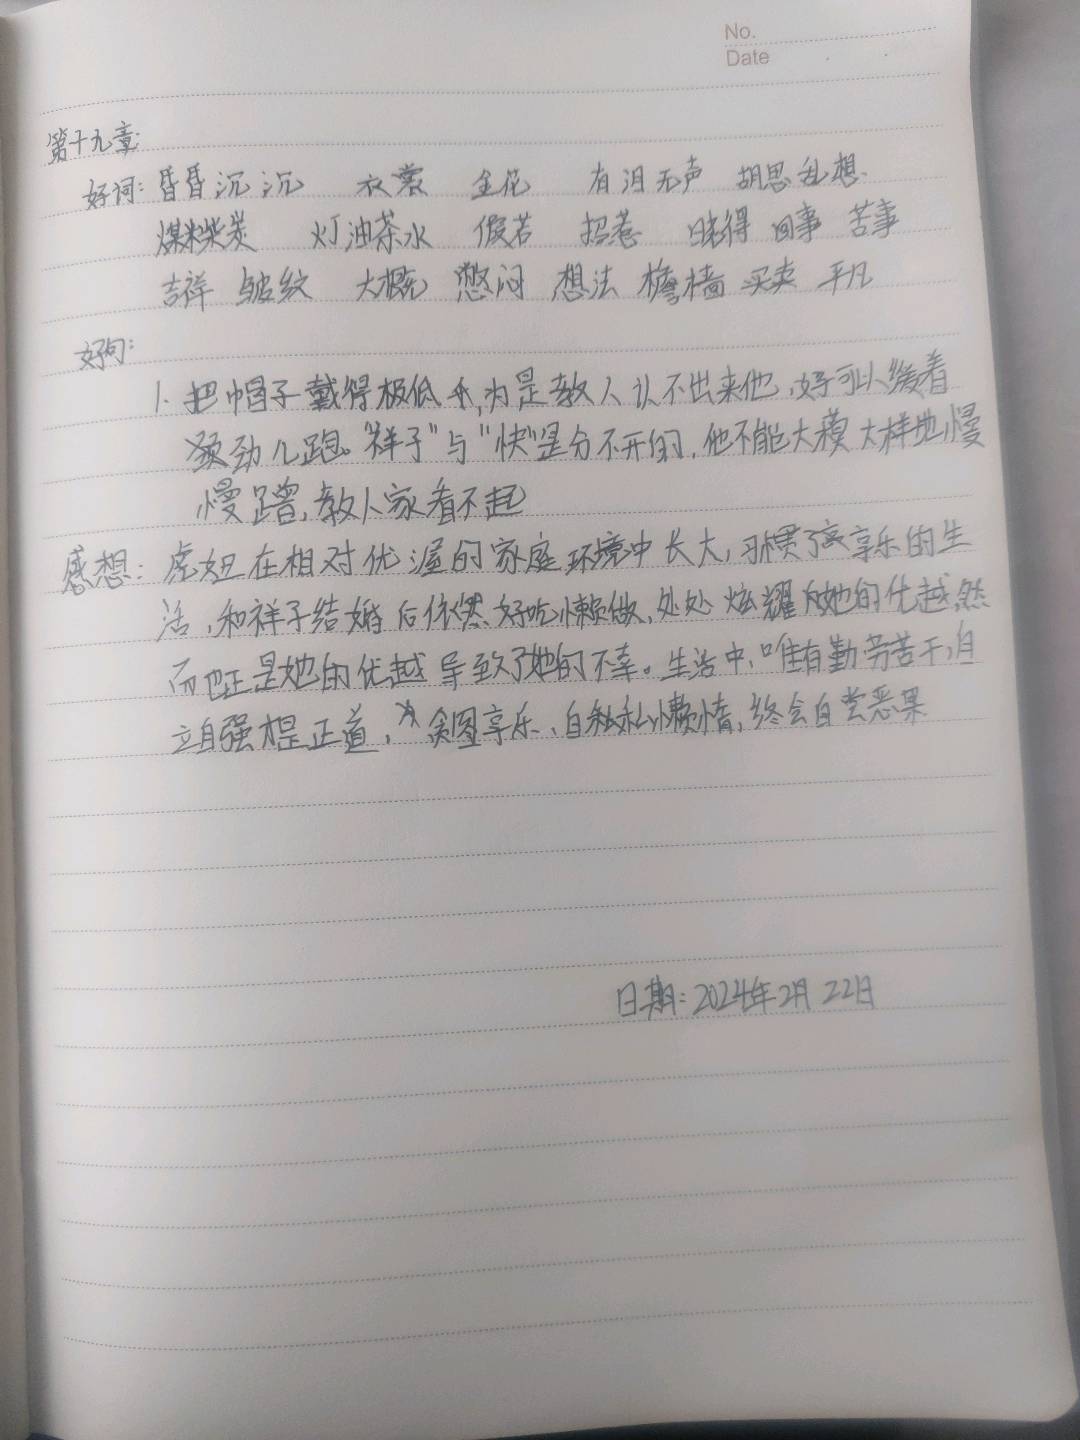 No.
Date
第十九章:
好词: 昏昏沉沉 衣裳 全花 有泪无声 胡思乱想
煤米柴炭 灯油茶水 假若 招惹 晓得 回事 苦事
吉祥 皱纹 大概 憋闷 想法 墙 买卖 平凡
好句:
1. 把帽子戴得极低,为是教人认不出来他,好可以缓着
颈劲儿跑。"祥子"与"快"是分不开的,他不能大模大样地慢
慢蹭,教人家看不起
感想: 虎妞在相对优渥的家庭环境中长大,习惯了享乐的生
活,和祥子结婚后依然好吃懒做,处处炫耀她的优越,然
而也正是她的优越导致了她的不幸。生活中,唯有勤劳苦干,自
立自强才是正道,贪图享乐、自私懒惰,终会自尝恶果
日期:2024年2月22日